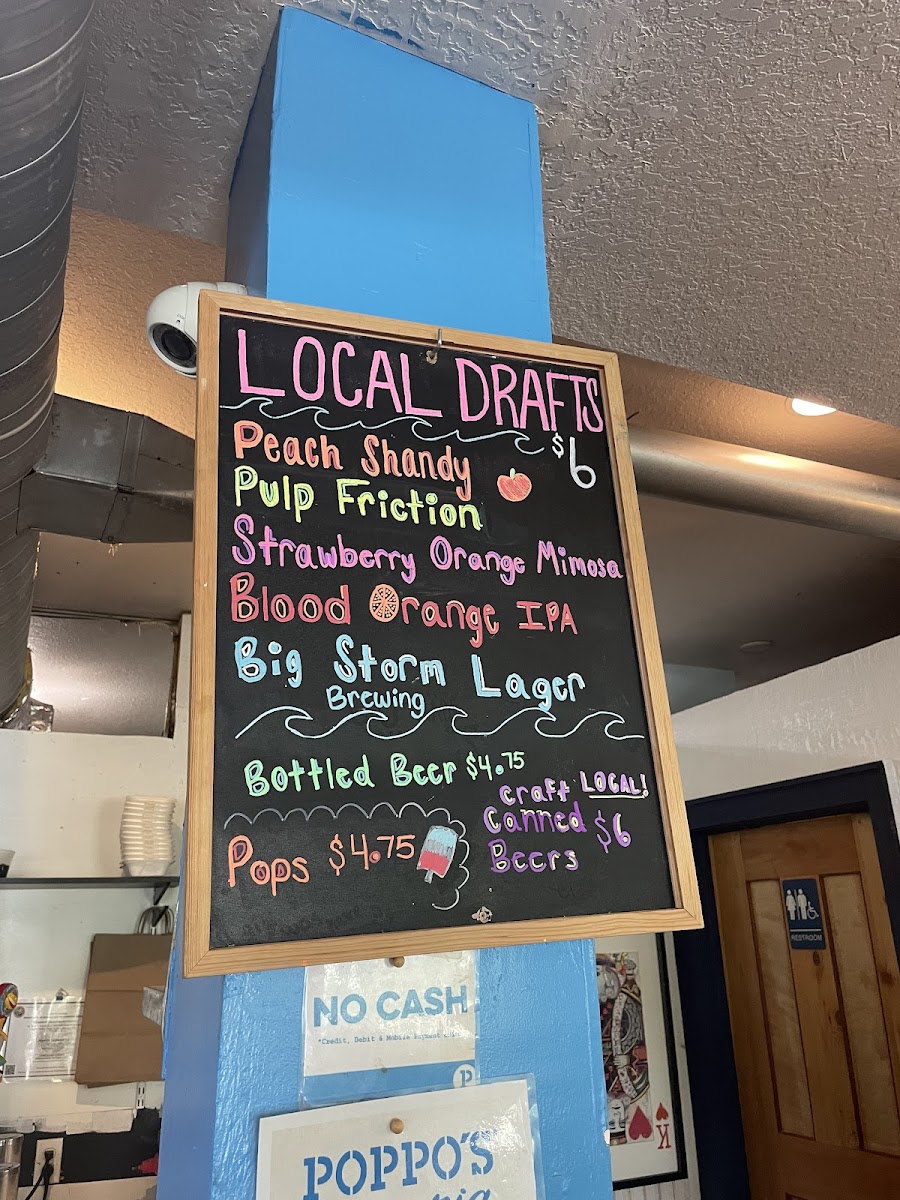 LOCAL DRAFTS
$6
Peach Shandy
Pulp Friction
Strawberry Orange Mimosa
Blood Orange IPA
Big Storm Lager
Brewing
Bottled Beer $4.75
craft LOCAL!
Canned $6
Beers
Pops $4.75
NO CASH
*Credit, Debit & Mobile Payment
P
POPPO'S
RESTROOM
K